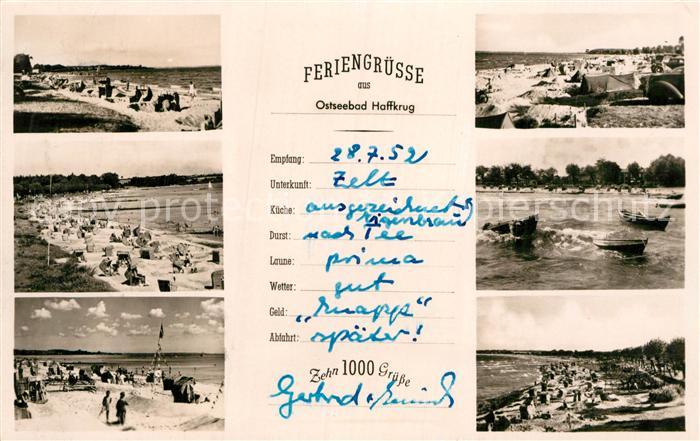 FERIENGRÜSSE
aus
Ostseebad Haffkrug
Empfang: 28.7.52
Unterkunft: Zelt
Küche: ausgezeichnet
Durst: nach Tee
Laune: prima
Wetter: gut
Geld: "knapp"
Abfahrt: später!
Zehn 1000 Grüße
Gerhard